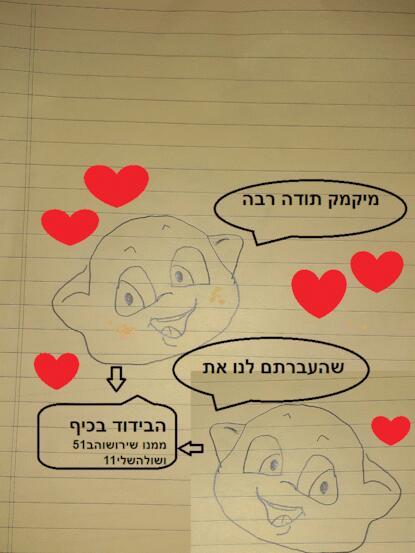 מיקמק תודה רבה
שהעברתם לנו את
הבידוד בכיף
ממנו שירושוהב51
ושולהשלי11